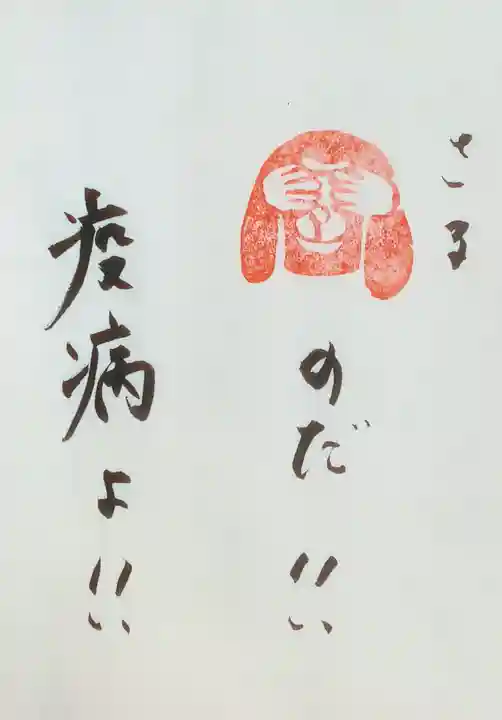 さる
のだ!!
疫病よ!!